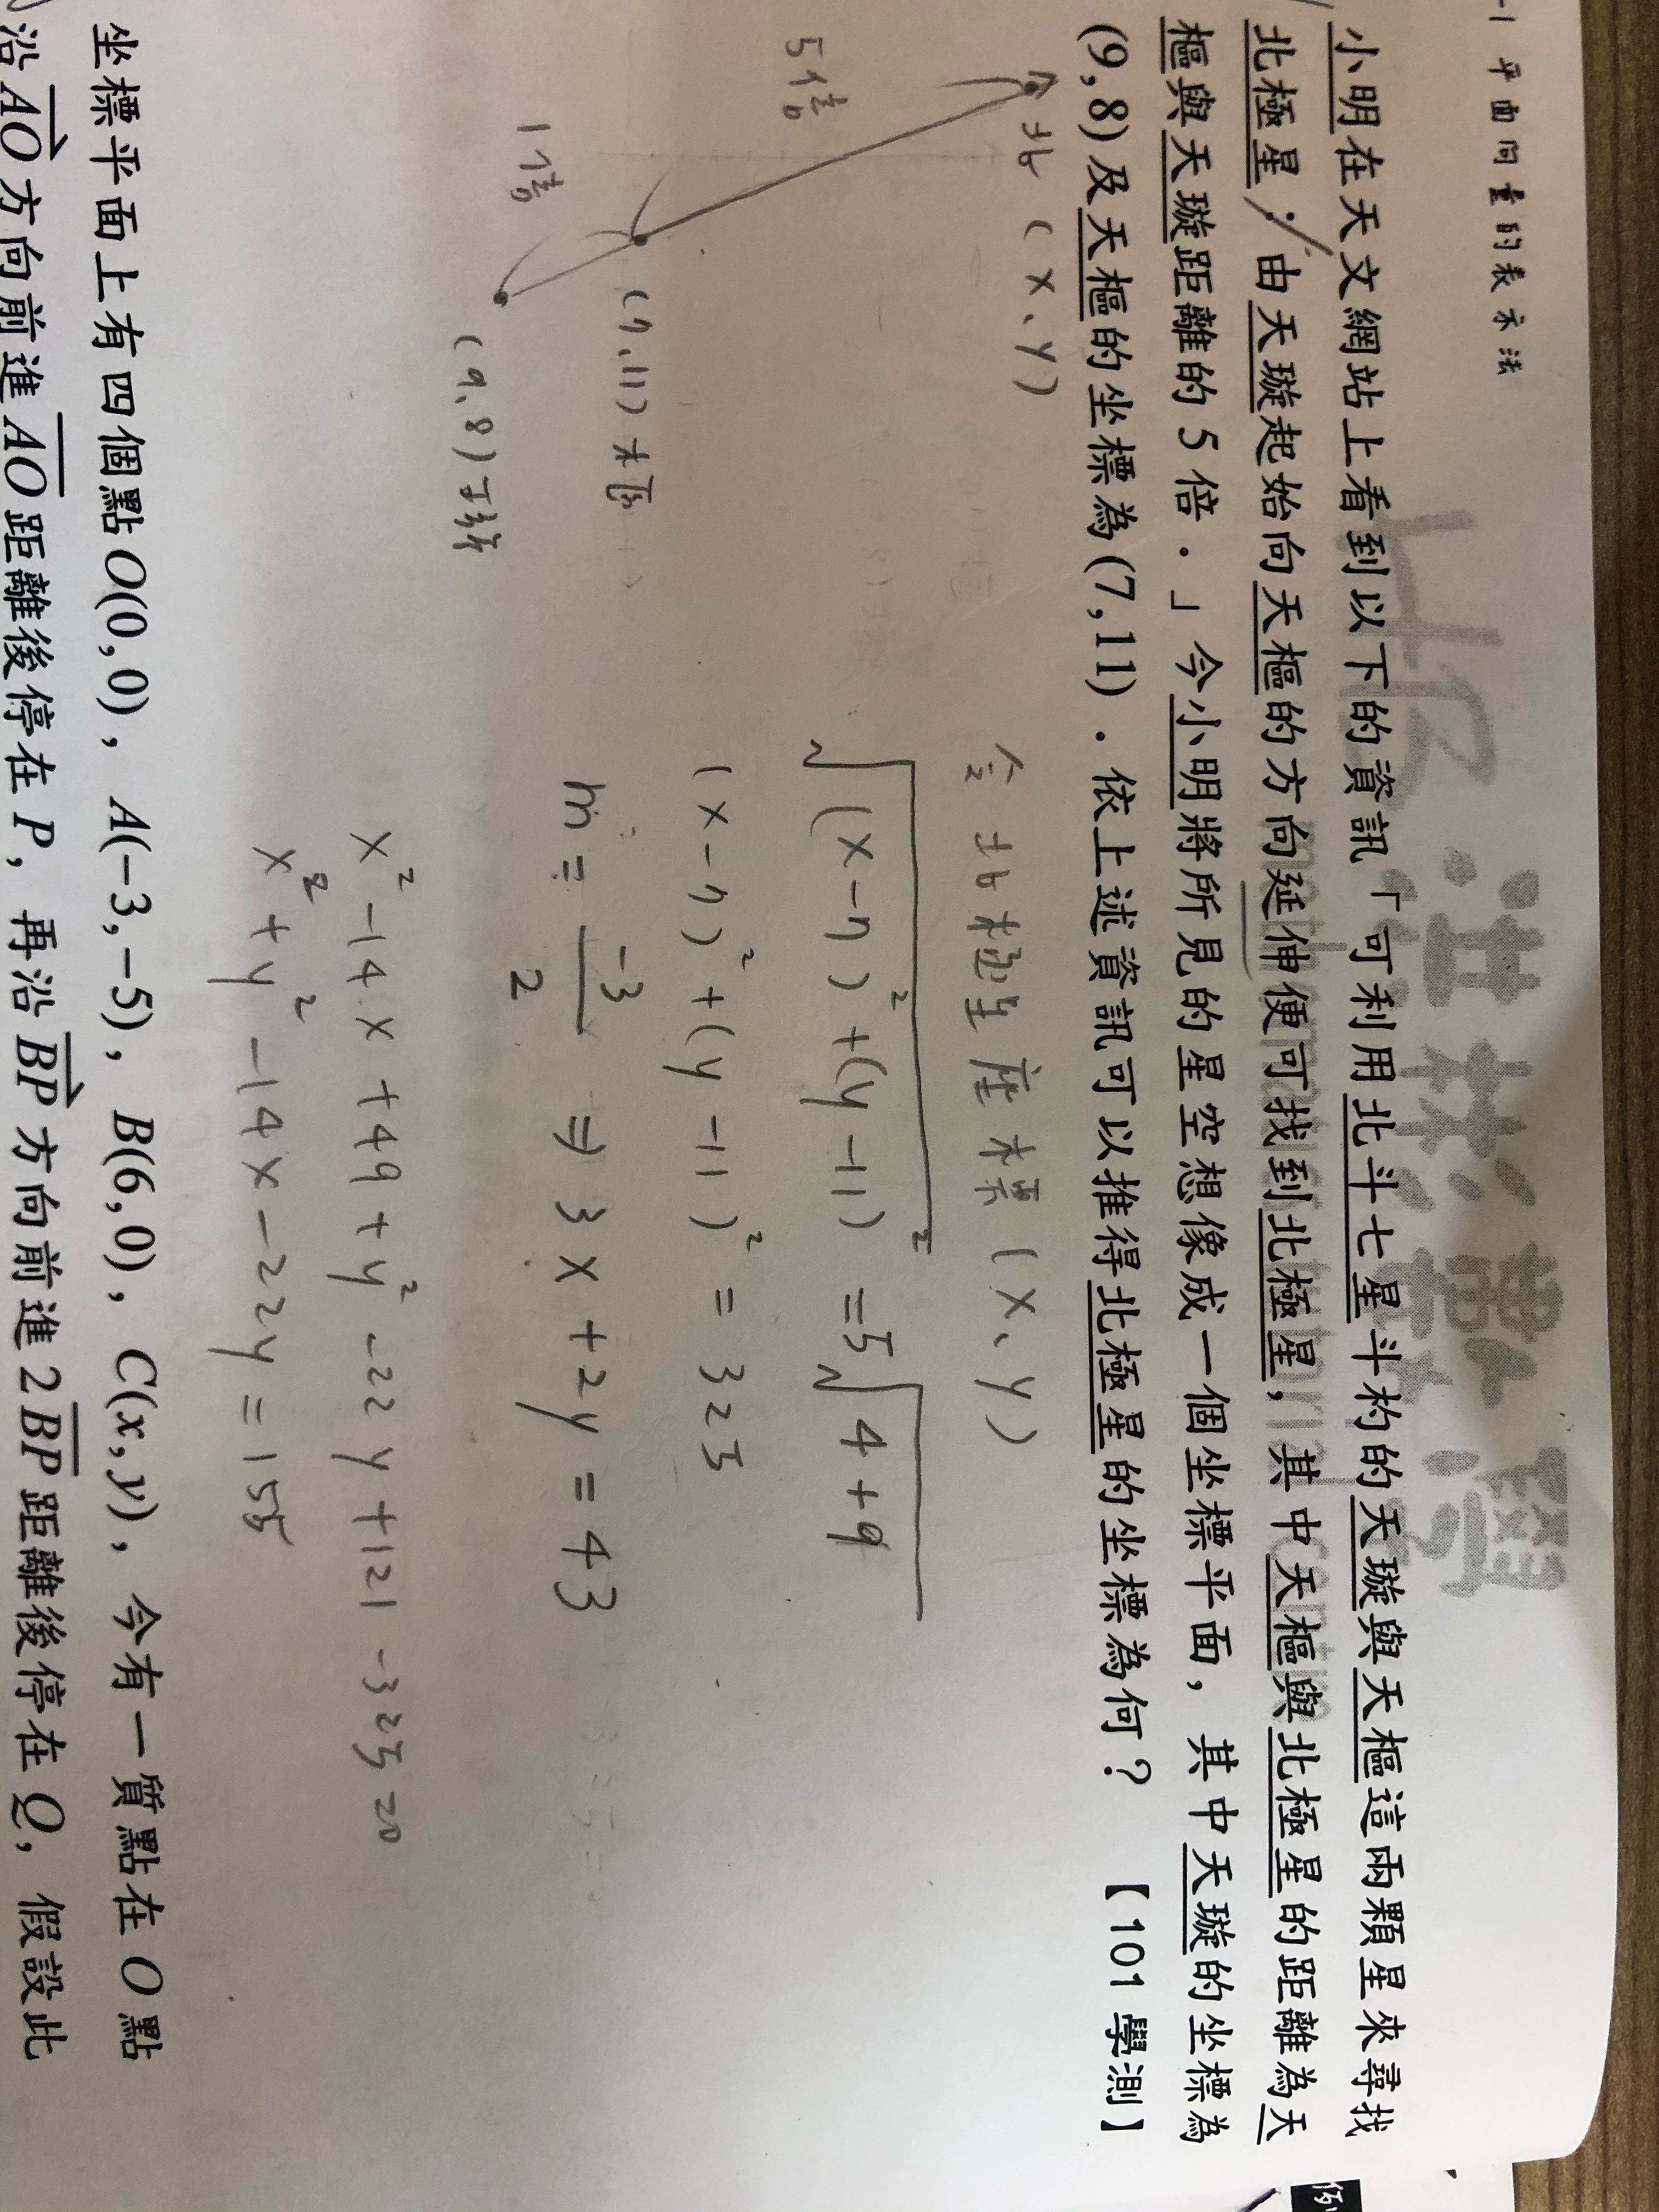 -1 平面向量的表示法
小明在天文網站上看到以下的資訊「可利用北斗七星斗杓的天璇與天樞這兩顆星來尋找
北極星:由天璇起始向天樞的方向延伸便可找到北極星,其中天樞與北極星的距離為天
樞與天璇距離的5倍.」今小明將所見的星空想像成一個坐標平面,其中天璇的坐標為
(9,8)及天樞的坐標為(7,11).依上述資訊可以推得北極星的坐標為何? 【101學測】
北(x、y)
5倍
(7、11)
1倍
(9、8)
令北極星座標(x、y)
√(x-7)²+(y-11)² =5√4+9
(x-7)²+(y-11)²=325
m=-3/2 ⇒ 3x+2y=43
x²-14x+49+y²-22y+121-325=0
x²+y²-14x-22y=155
坐標平面上有四個點O(0,0),A(-3,-5),B(6,0),C(x,y),今有一質點在O點
沿AO方向前進AO距離後停在P,再沿BP方向前進2BP距離後停在Q,假設此
例